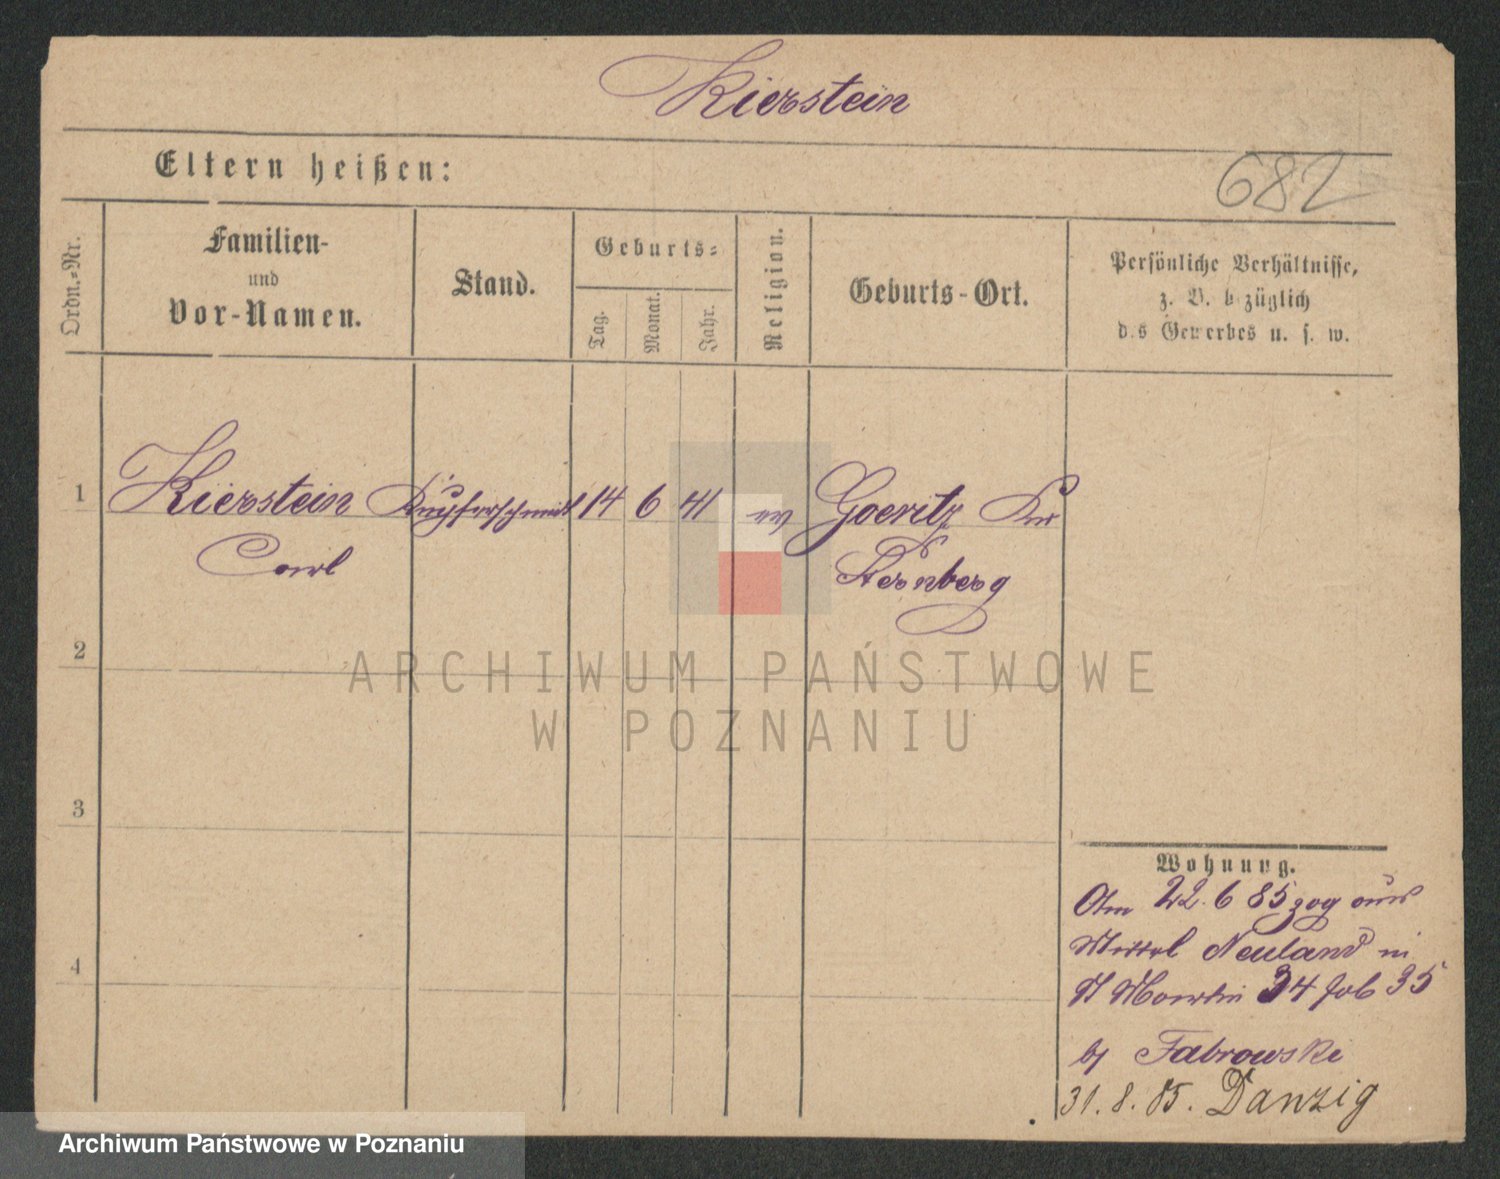 Kierstein
Eltern heißen:
682
Ordn.-Nr.
Familien-
und
Vor-Namen.
Stand.
Geburts-
Tag.
Monat.
Jahr.
Religion.
Geburts-Ort.
Persönliche Verhältnisse,
z. B. bezüglich
des Gewerbes u. s. w.
1 Kierstein Kupferschmidt 14 6 41 ev Goeritz Kr
Carl Sternberg
2
3
4
Wohnung.
Am 22. 6 85 zog aus
Neuland in
St Martin 34 35
b/ Fabrowski
31. 8. 85. Danzig
ARCHIWUM PAŃSTWOWE
W POZNANIU
Archiwum Państwowe w Poznaniu